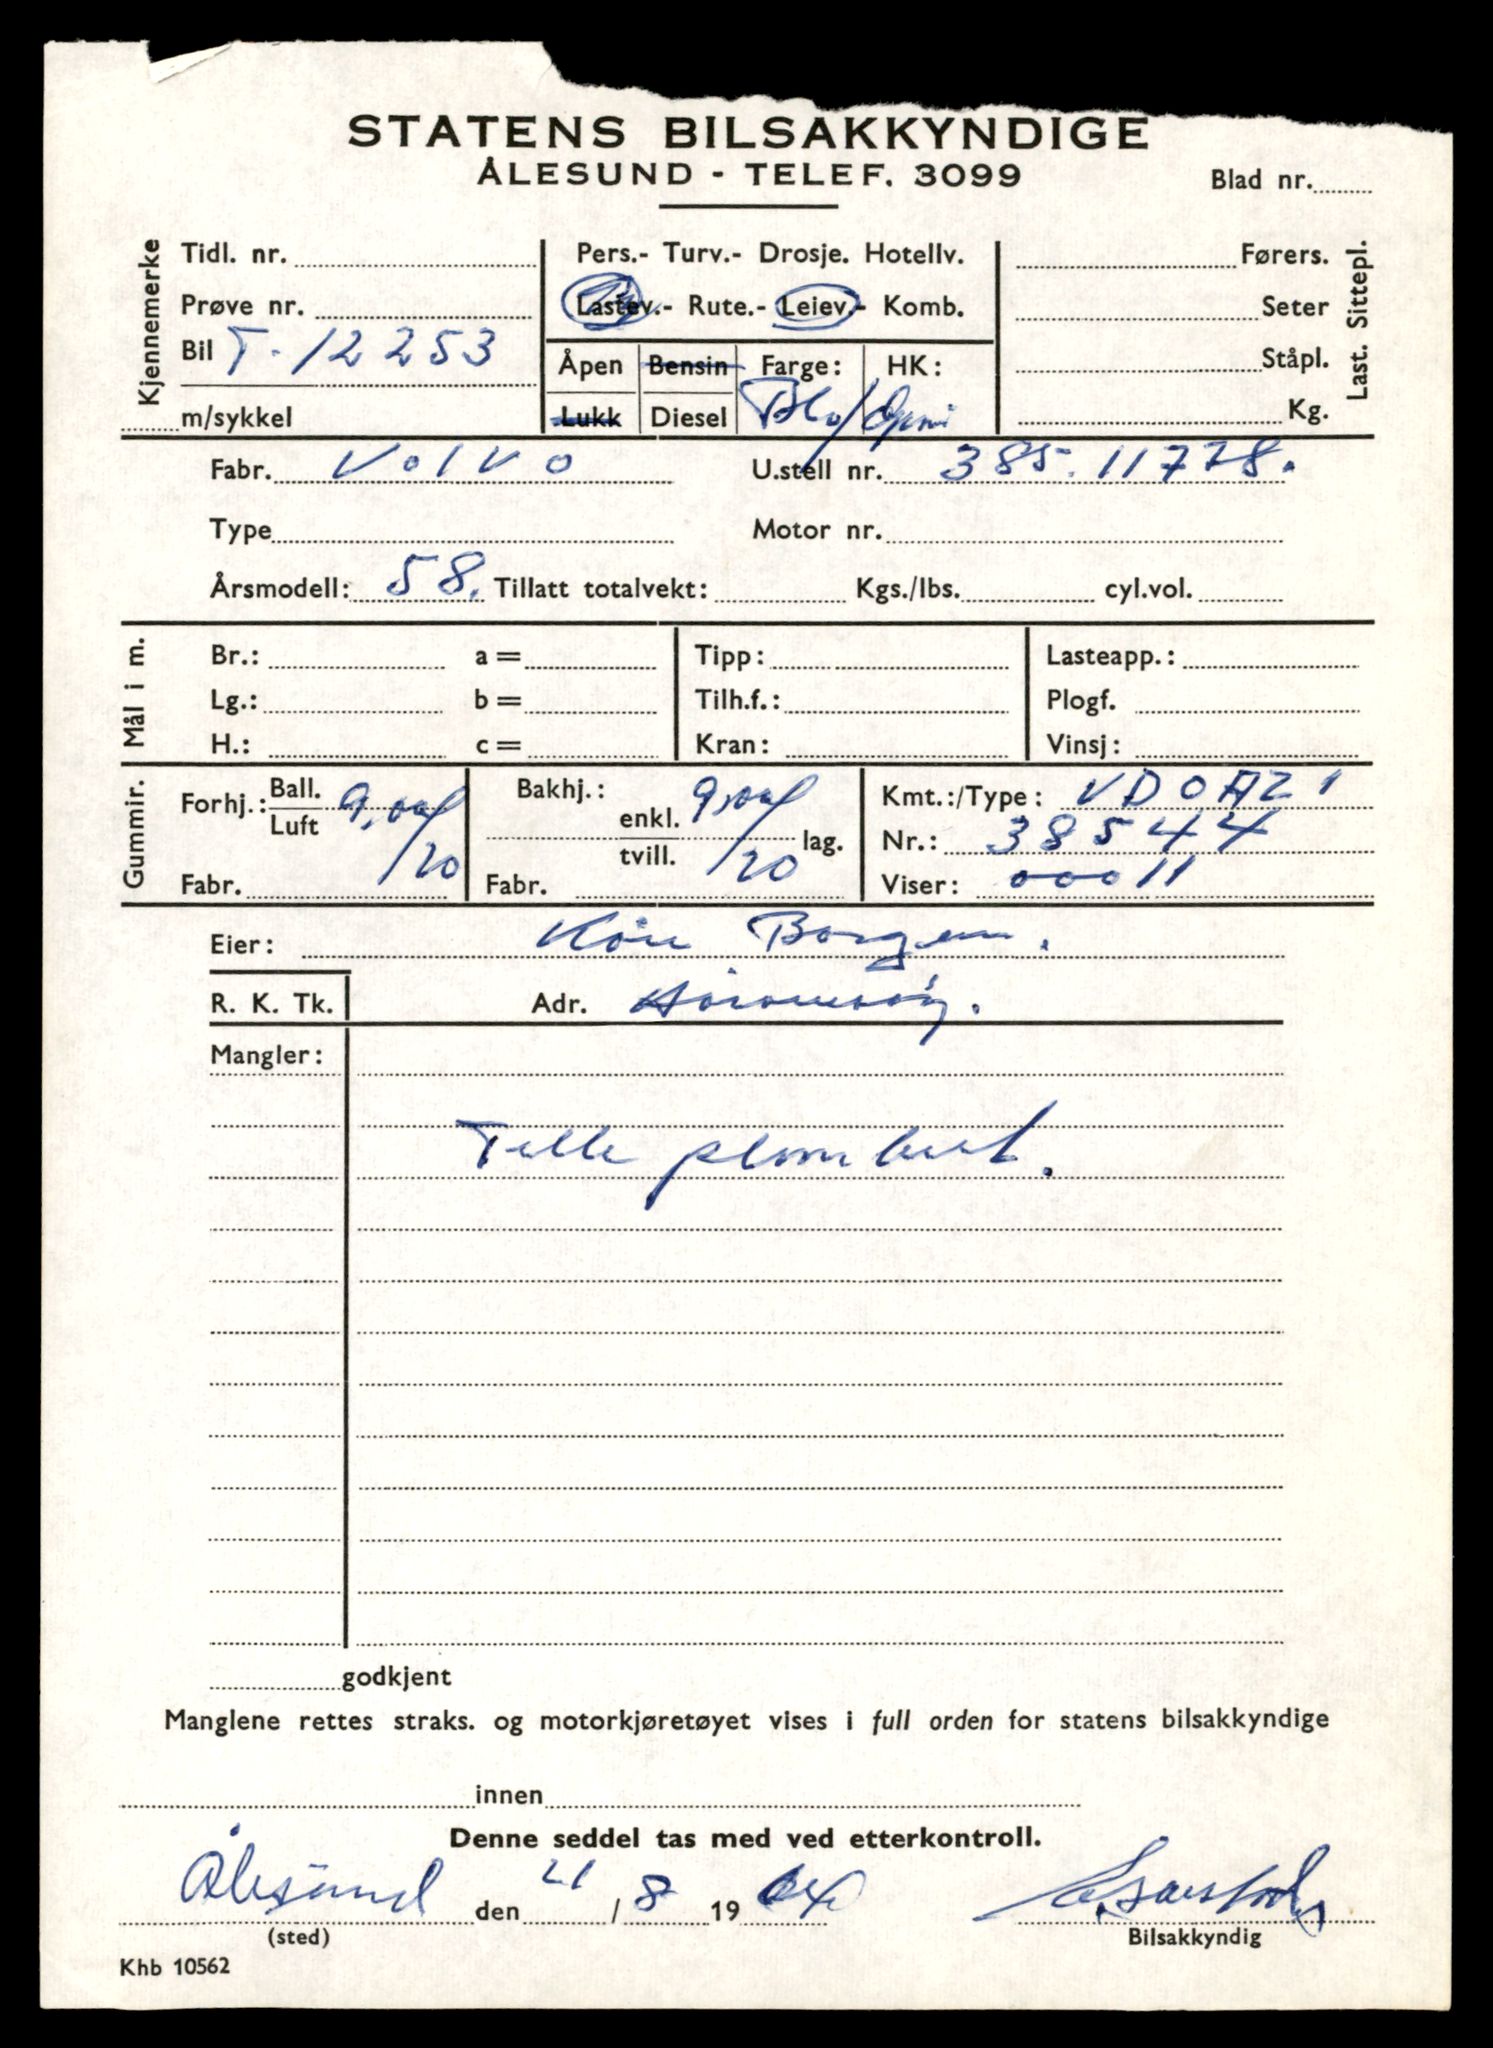 STATENS BILSAKKYNDIGE
ÅLESUND - TELEF. 3099
Blad nr.
Kjennemerke
Tidl. nr.
Prøve nr.
Bil T-12253
m/sykkel
Pers.- Turv.- Drosje. Hotellv.
Lastev.- Rute.- Leiev.- Komb.
Åpen Bensin Farge: HK:
Lukk Diesel
Last. Sittepl.
Førers.
Seter
Ståpl.
Kg.
Fabr. Volvo U.stell nr. 385.11778.
Type Motor nr.
Årsmodell: 58. Tillatt totalvekt: Kgs./lbs. cyl.vol.
Mål i m.
Br.: a = Tipp: Lasteapp.:
Lg.: b = Tilh.f.: Plogf.
H.: c = Kran: Vinsj:
Gummir.
Forhj.: Ball. Luft /20
Fabr.
Bakhj.: enkl. tvill. /20 lag.
Fabr.
Kmt.:/Type: VDOAZ1
Nr.: 38544
Viser: 00011
Eier: Borgen.
R. K. Tk. Adr.
Mangler:
Telle plombert.
godkjent
Manglene rettes straks. og motorkjøretøyet vises i full orden for statens bilsakkyndige
innen
Denne seddel tas med ved etterkontroll.
Ålesund den 21/8 1964
(sted) Bilsakkyndig
Khb 10562